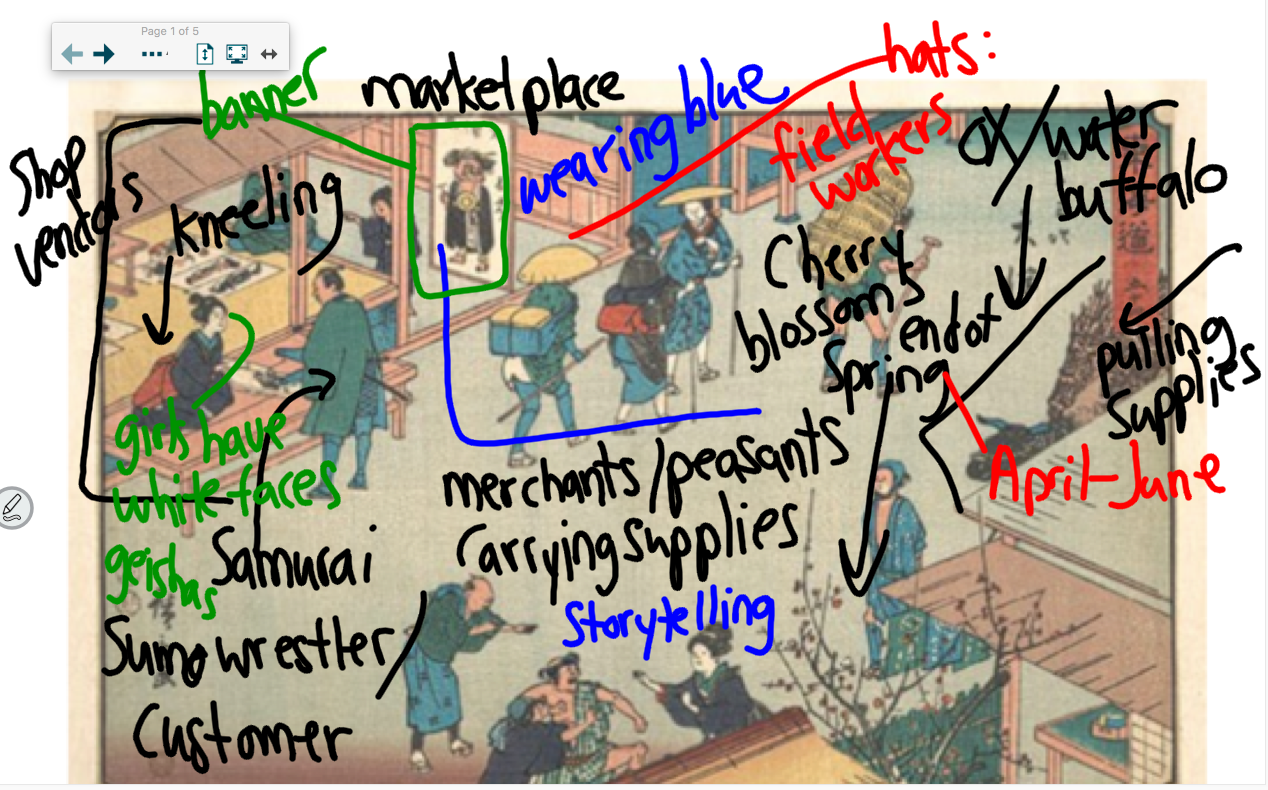 Page 1 of 5
banner
market place
wearing blue
hats:
field
workers
ox/water
buffalo
Shop
vendors
kneeling
道
Cherry
blossoms
end of
Spring
pulling
Supplies
April-June
girls have
white faces
geishas
Samurai
merchants/peasants
Carrying supplies
Storytelling
Sumo wrestler/
Customer